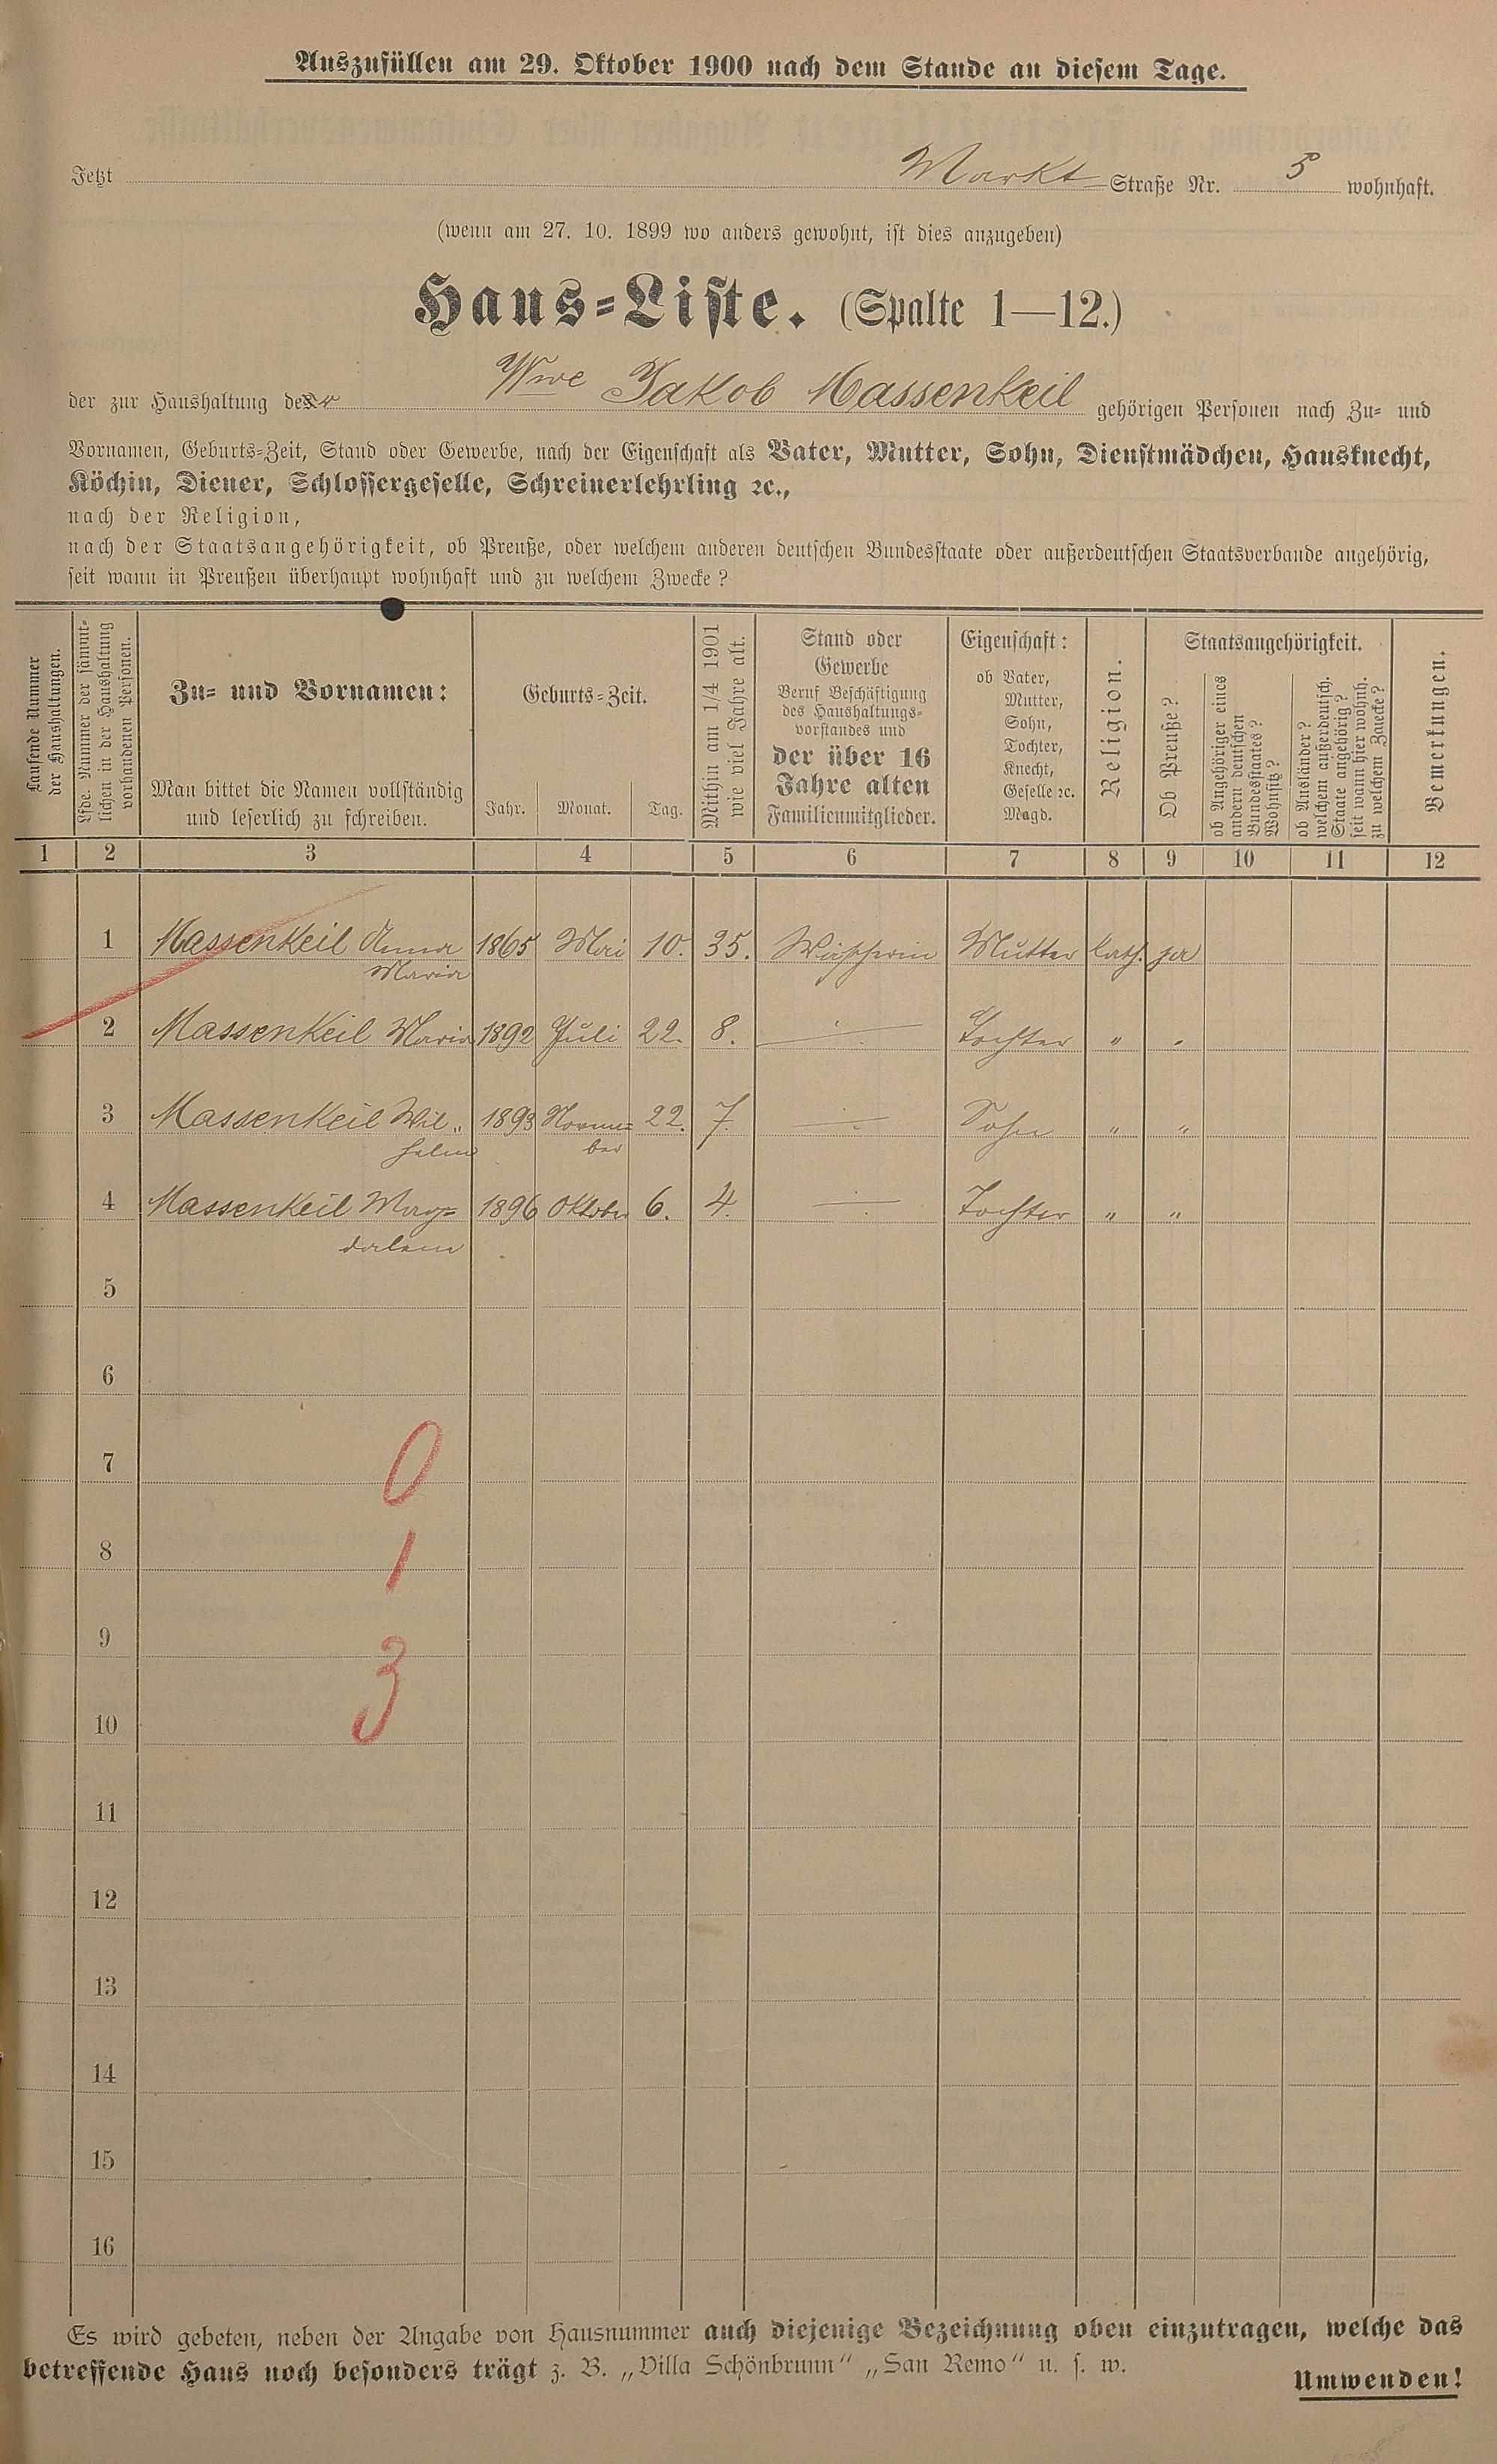 Auszufüllen am 29. Oktober 1900 nach dem Stande an diesem Tage.
Jetzt Markt Straße Nr. 5 wohnhaft.
(wenn am 27. 10. 1899 wo anders gewohnt, ist dies anzugeben)
Haus-Liste. (Spalte 1—12.)
der zur Haushaltung der Wwe Jakob Massenkeil gehörigen Personen nach Zu- und
Vornamen, Geburts-Zeit, Stand oder Gewerbe, nach der Eigenschaft als Vater, Mutter, Sohn, Dienstmädchen, Hausknecht,
Köchin, Diener, Schlossergeselle, Schreinerlehrling ꝛc.,
nach der Religion,
nach der Staatsangehörigkeit, ob Preuße, oder welchem anderen deutschen Bundesstaate oder außerdeutschen Staatsverbande angehörig,
seit wann in Preußen überhaupt wohnhaft und zu welchem Zwecke?
Laufende Nummer
der Haushaltungen.
Lfde. Nummer der sämmt-
lichen in der Haushaltung
vorhandenen Personen.
Zu- und Vornamen:
Man bittet die Namen vollständig
und leserlich zu schreiben.
Geburts-Zeit.
Jahr. Monat. Tag.
Mithin am 1/4 1901
wie viel Jahre alt.
Stand oder
Gewerbe
Beruf Beschäftigung
des Haushaltungs-
vorstandes und
der über 16
Jahre alten
Familienmitglieder.
Eigenschaft:
ob Vater,
Mutter,
Sohn,
Tochter,
Knecht,
Geselle ꝛc.
Magd.
Religion.
Staatsangehörigkeit.
Ob Preuße?
ob Angehöriger eines
andern deutschen
Bundesstaates?
Wohnsitz?
ob Ausländer?
welchem außerdeutsch.
Staate angehörig?
seit wann hier wohnh.
zu welchem Zwecke?
Bemerkungen.
1 2 3 4 5 6 7 8 9 10 11 12
1 Massenkeil Anna 1865 Mai 10. 35. Mutter kath. ja
Maria
2 Massenkeil Maria 1892 Juli 22. 8. Tochter " "
3 Massenkeil Wil- 1893 Novem= 22. 7. Sohn " "
helm ber
4 Massenkeil Mag= 1896 Oktober 6. 4. Tochter " "
dalena
5
6
7
0
8
1
9
3
10
11
12
13
14
15
16
Es wird gebeten, neben der Angabe von Hausnummer auch diejenige Bezeichnung oben einzutragen, welche das
betreffende Haus noch besonders trägt z. B. „Villa Schönbrunn" „San Remo" u. s. w.
Umwenden!